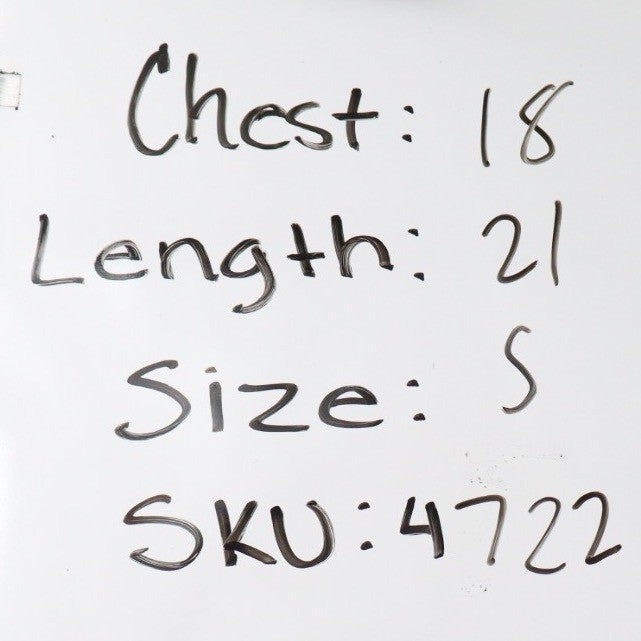 Chest: 18
Length: 21
Size: S
SKU: 4722